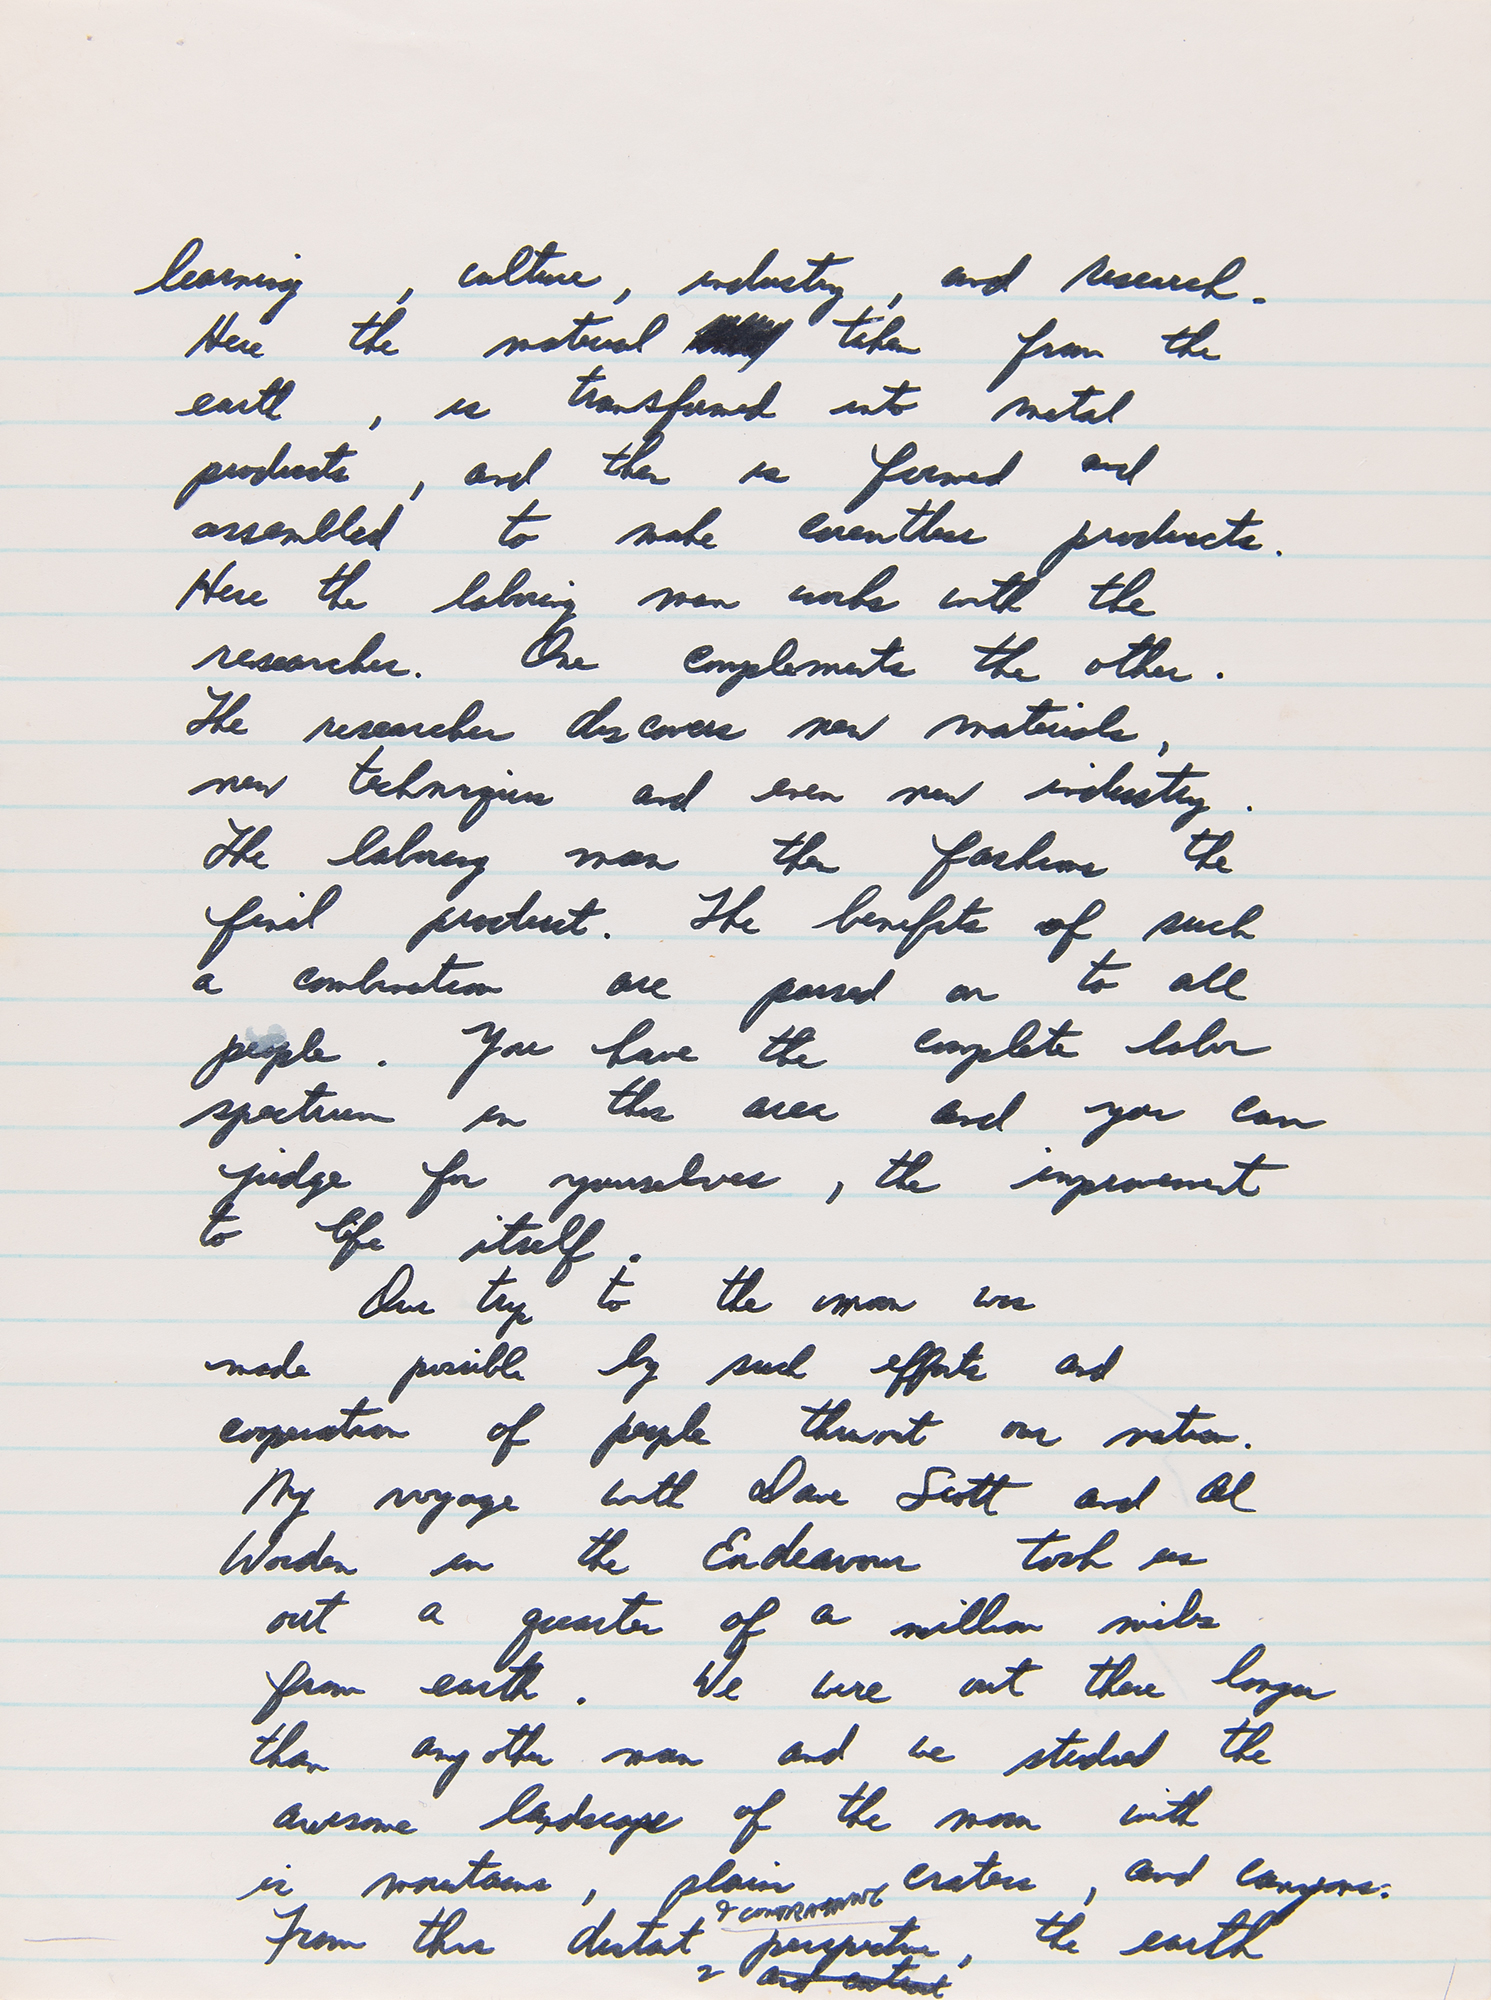 learning , culture, industry, and research.
Here the material taken from the
earth , is transformed into metal
products , and then is formed and
assembled to make countless products.
Here the laboring man works with the
researcher. One complements the other.
The researcher discovers new materials,
new techniques and even new industry.
The laboring man then fashions the
final product. The benefits of such
a combination are passed on to all
people. You have the complete labor
spectrum in this area and you can
judge for yourselves, the improvement
to life itself.
Our trip to the moon was
made possible by such efforts and
cooperation of people thruout our nation.
My voyage with Dave Scott and Al
Worden in the Endeavour took us
out a quarter of a million miles
from earth. We were out there longer
than any other man and we studied the
awesome landscape of the moon with
is mountains, plain craters, and canyons.
From this distant perspective, the earth
and